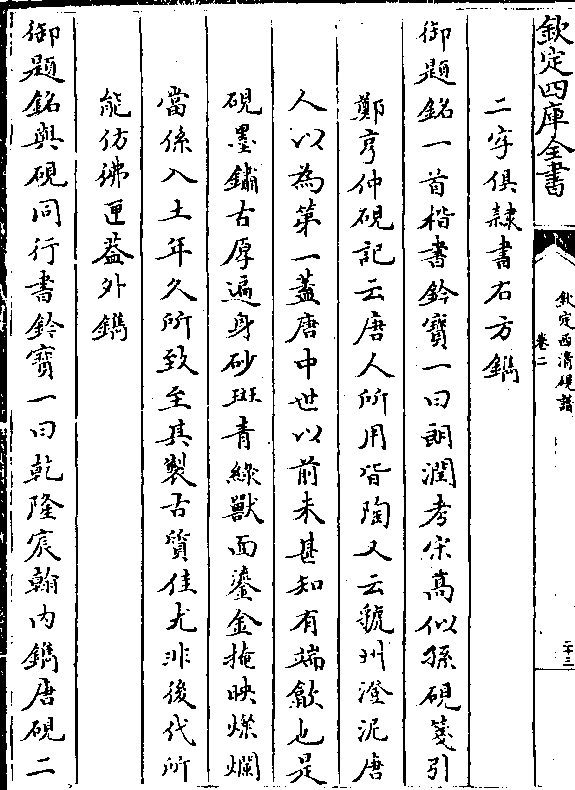 欽定四庫全書
欽定西清硯譜
卷二
二十三
二字俱隷書右方鐫
御題銘一首楷書鈐寳一曰朗潤考宋高似孫硯箋引
鄭亨仲硯記云唐人所用皆陶又云虢州澄泥唐
人以為第一蓋唐中世以前未甚知有端歙也是
硯墨鏽古厚遍身砂斑青緑獸面鎏金掩映燦爛
當係入土年久所致至其製古質佳尤非後代所
能仿佛匣葢外鐫
御題銘與硯同行書鈐寳一曰乾隆宸翰内鐫唐硯二